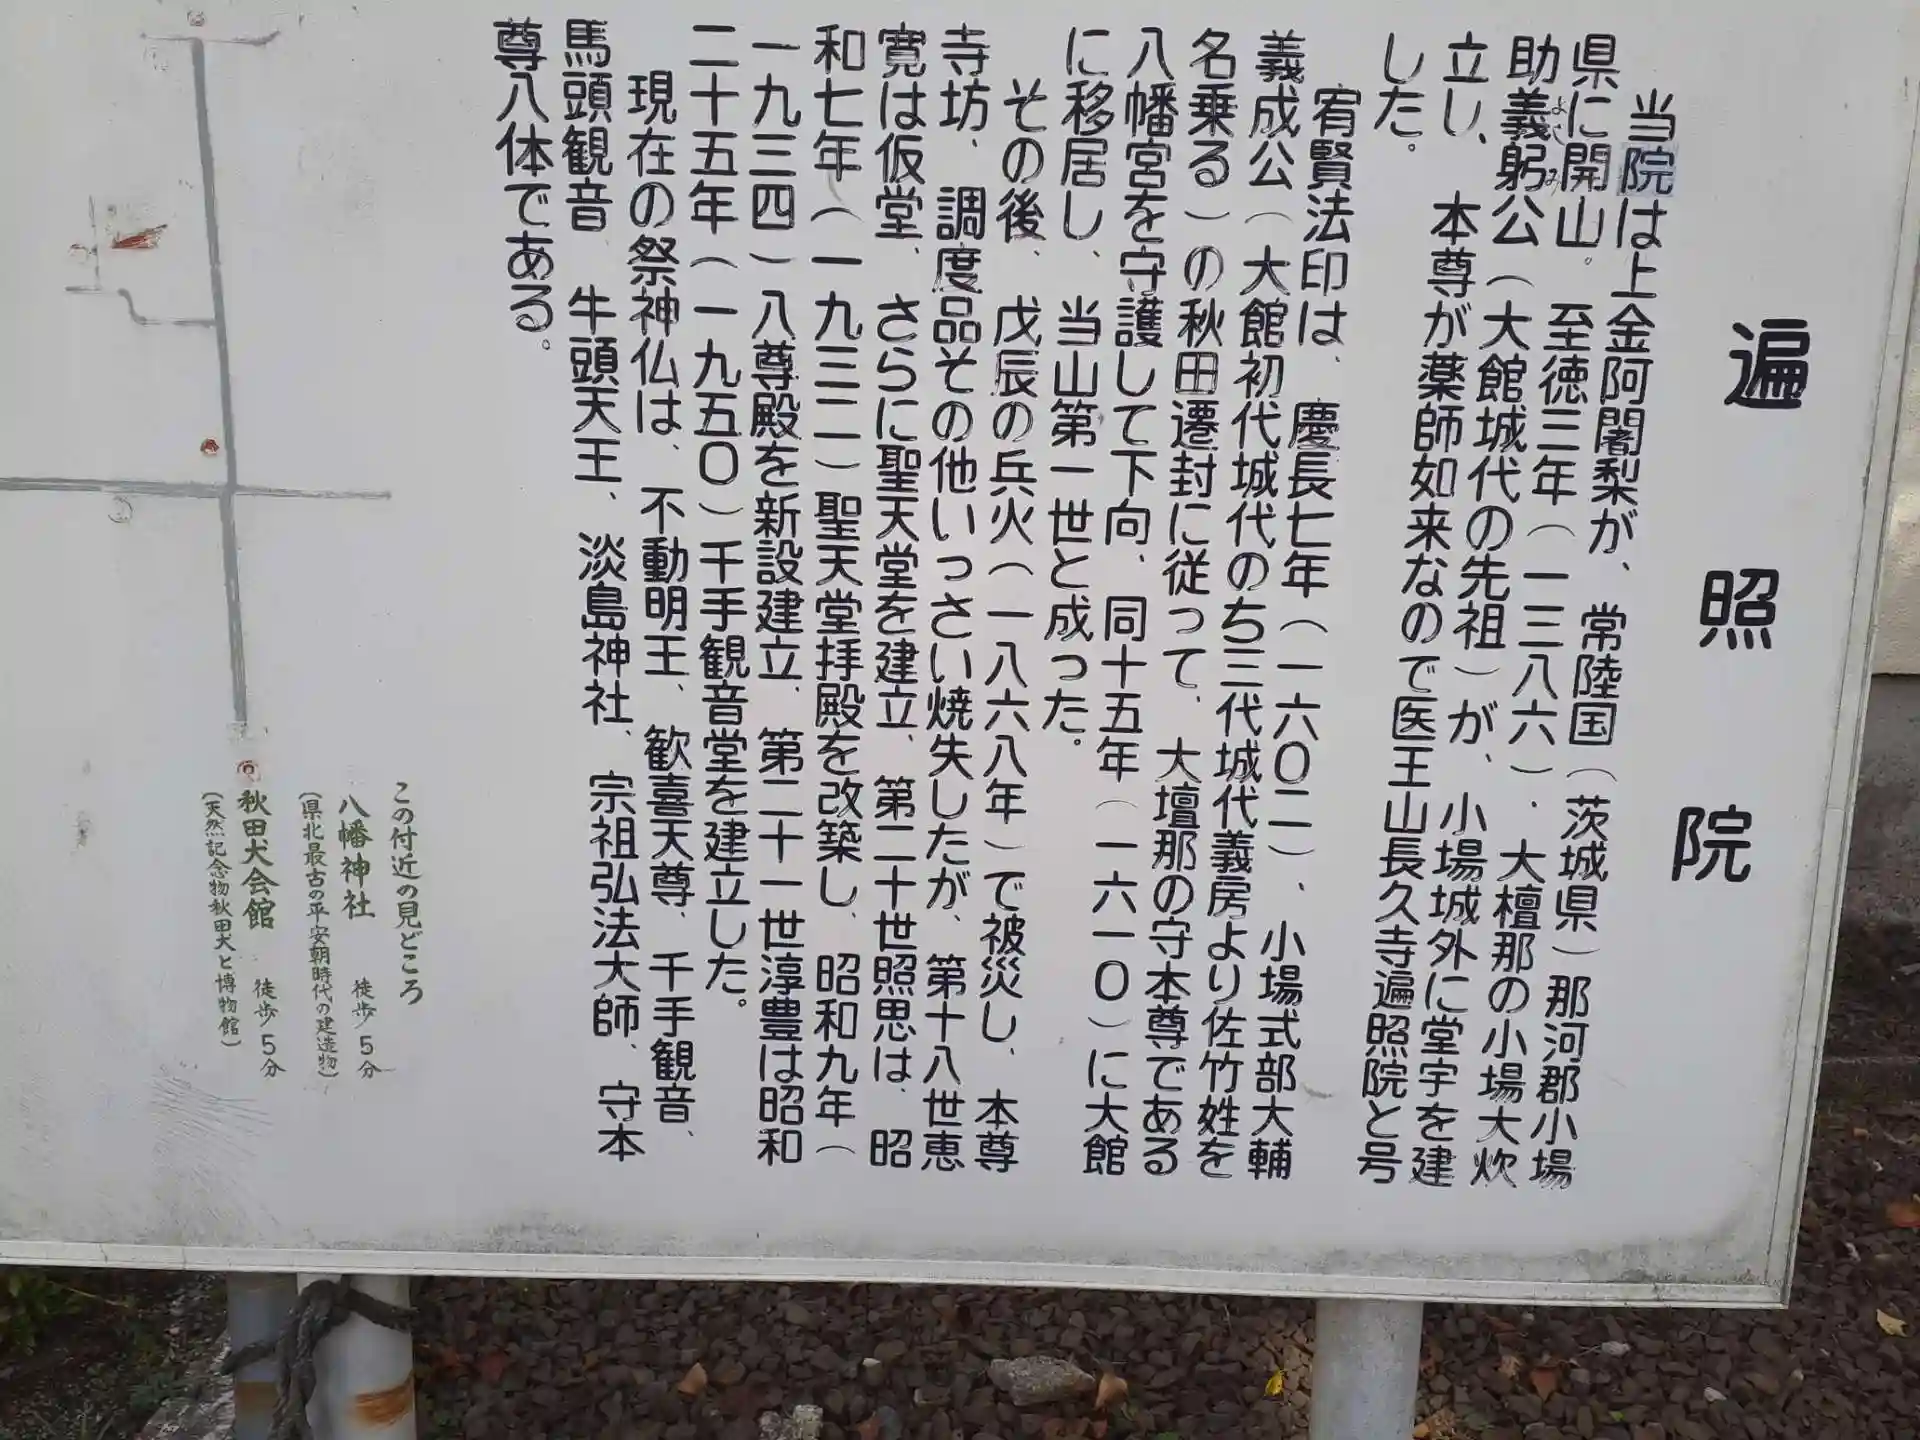 遍照院
当院は上金阿闍梨が、常陸国（茨城県）那河郡小場
県に開山。至徳三年（一三八六）、大檀那の小場大炊
助義躬公（大館城代の先祖）が、小場城外に堂宇を建
よしみ
立し、本尊が薬師如来なので医王山長久寺遍照院と号
した。
宥賢法印は、慶長七年（一六〇二）、小場式部大輔
義成公（大館初代城代のち三代城代義房より佐竹姓を
名乗る）の秋田遷封に従って、大壇那の守本尊である
八幡宮を守護して下向、同十五年（一六一〇）に大館
に移居し、当山第一世と成った。
その後、戊辰の兵火（一八六八年）で被災し、本尊
寺坊、調度品その他いっさい焼失したが、第十八世恵
寛は仮堂、さらに聖天堂を建立、第二十世照思は、昭
和七年（一九三二）聖天堂拝殿を改築し、昭和九年（
一九三四）八尊殿を新設建立、第二十一世淳豊は昭和
二十五年（一九五〇）千手観音堂を建立した。
現在の祭神仏は、不動明王、歓喜天尊、千手観音、
馬頭観音、牛頭天王、淡島神社、宗祖弘法大師、守本
尊八体である。
この付近の見どころ
八幡神社 徒歩5分
（県北最古の平安朝時代の建造物）
秋田犬会館 徒歩5分
（天然記念物秋田犬と博物館）